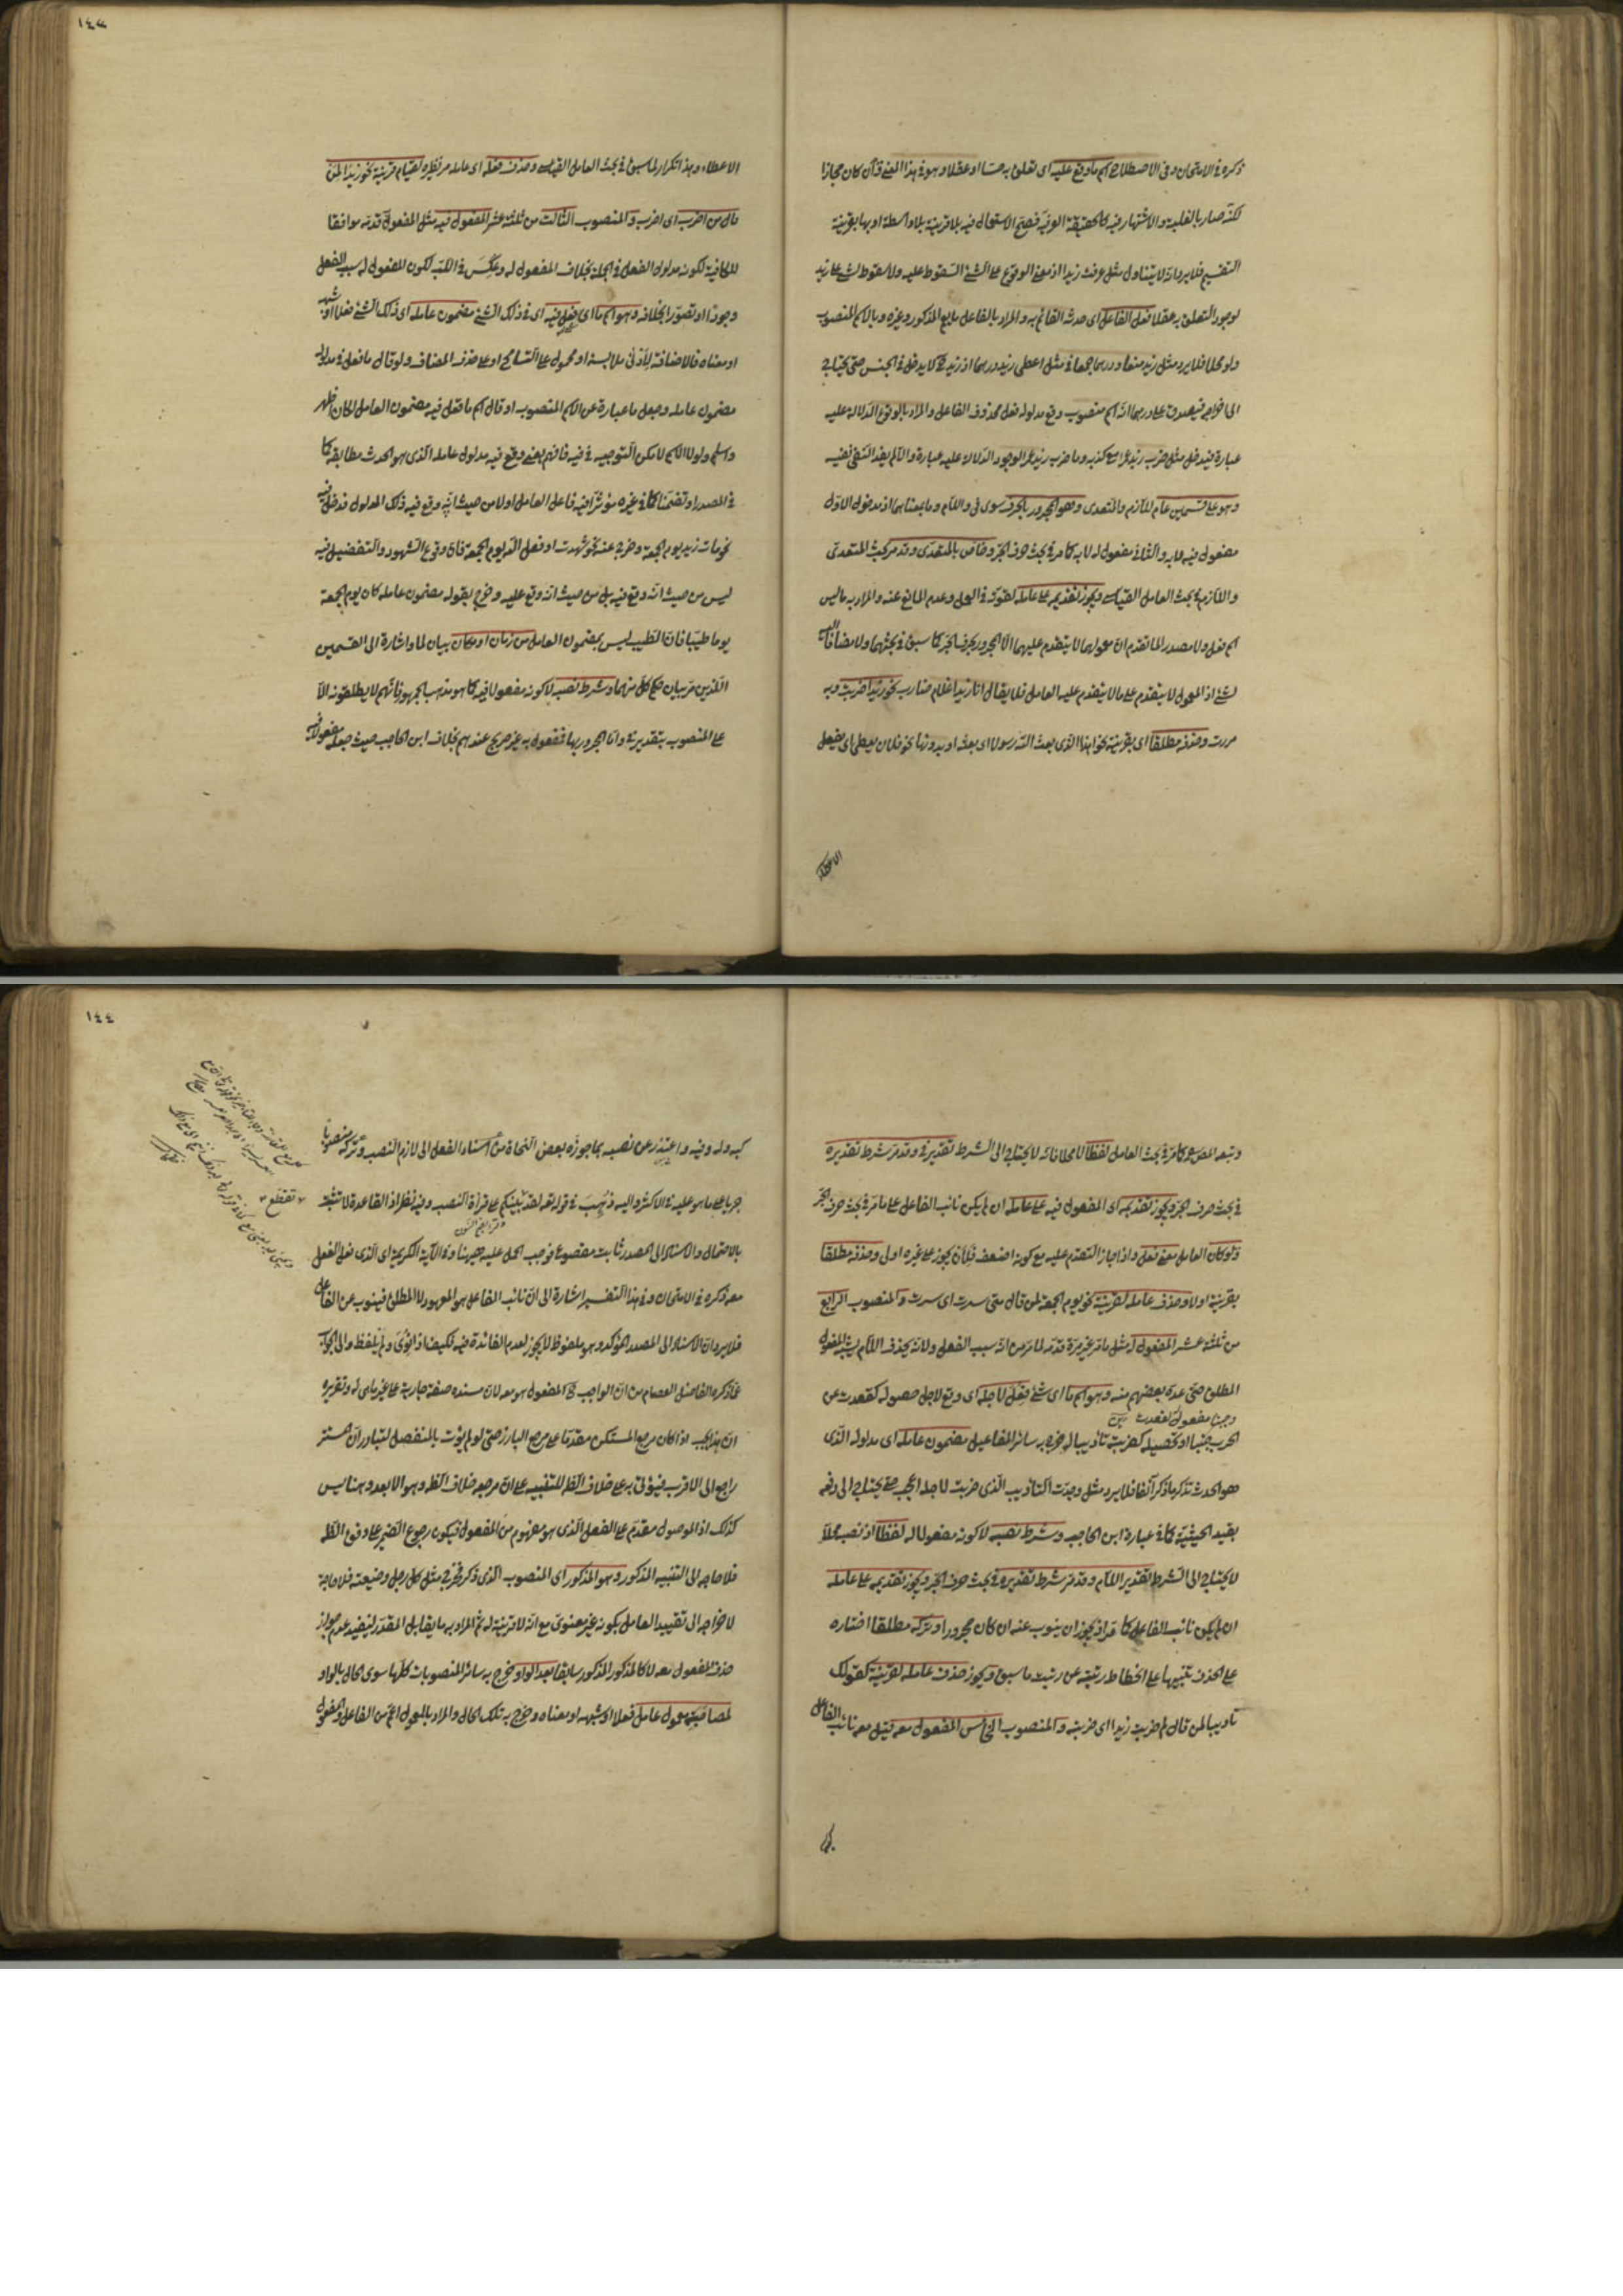 ذكره في الامتحان وفي الاصطلاح اسم ما وقع عليه اى تعلق به حسا او عقلا وهو في هذا المعنى وان كان مجازا
لكنه صار بالغلبة والاشتهار فيه كالحقيقة العرفية فصح الاستعمال فيه بلا قرينة بلا واسطة او بها بقرينة
التقسيم فلا يرد انه لا يتناول مثل عرفت زيدا اذ معنى الوقوع على الشئ السقوط عليه ولا سقوط لشئ على زيد
لوجود التعلق به عقلا فعل الفاعل اى حدثه القائم به والمراد بالفاعل ما يعم المذكور وغيره وبالاسم المنصوب
ولو محلا فلا يرد مثل زيد درهما في مثل اعطى زيد درهما اذ زيد لا يدخل في الجنس حتى يحتاج
الى اخراجه فيصدق على درهما انه اسم منصوب وقع مدلوله فعل محذوف الفاعل والمراد بالوقوع الدلالة عليه
عبارة فيدخل مثل ضرب زيد عمرا مع كذبه وما ضرب زيد عمرا لوجود الدلالة عليه عبارة والا لم يفد النفى نفيه
وهو على قسمين عام للازم والمتعدى وهو المجرور بالحرف سوى في واللام وما بمعناهما اذ مدخول الاول
مفعول فيه لا به والثانى مفعول له لا به كما مر في بحث حرف الجر وخاص بالمتعدى وقد مر بحث المتعدى
واللازم في بحث العامل القياسى ويجوز تقديمه على عامله لقوته في العمل وعدم المانع عنه والمراد به ما ليس
اسم فعل ولا مصدر لما تقدم ان معمولهما لا يتقدم عليهما الا المجرور بحرف الجر كما سبق في بحثهما ولا مضافا اليه
لشئ اذ المعمول لا يتقدم على ما لا يتقدم عليه العامل فلا يقال انا زيدا غلام ضارب نحو زيدا ضربت وبه
مررت وحذفه مطلقا اى بقرينة نحو اهذا الذى بعث الله رسولا اى بعثه او بدونها نحو فلان يعطى اى يفعل
الاعطاء
١٤٣
الاعطاء وهذا تكرار لما سبق في بحث العامل القياسى وحذف فعله اى عامله مر نظيره لقيام قرينة نحو زيدا لمن
قال من اضرب اى اضرب والمنصوب الثالث من ثلثة عشر المفعول فيه مثل المفعول قدمه موافقا
للكافية لكونه مدلول الفعل في الجملة بخلاف المفعول له وعكس في اللب لكون المفعول له سبب الفعل
وجودا او تصورا بخلافه وهو اسم ما اى فعل فيه اى في ذلك الشئ مضمون عامله اى ذلك الشئ فعلا او شبهه
او معناه فالاضافة لادنى ملابسة او محمول على التسامح او على حذف المضاف ولو قال ما فعل فيه مدلول
مضمون عامله وجعل ما عبارة عن الاسم المنصوب او قال اسم ما فعل فيه مضمون العامل لكان اظهر
واسلم ولولا الاسم لامكن التوجيه في فيه فافهم يعنى وقع فيه مدلول عامله الذى هو الحدث مطابقة كما
في المصدر او تضمنا كما في غيره مؤثرا فيه فاعل العامل اولا من حيث انه وقع فيه ذلك المدلول فدخل فيه
نحو مات زيد يوم الجمعة وخرج عنه نحو شهدت او فعل الله يوم الجمعة فان وقوع الشهود والتفضيل فيه
ليس من حيث انه وقع فيه بل من حيث انه وقع عليه وخرج بقوله مضمون عامله كان يوم الجمعة
يوما طيبا فان الطيب ليس بمضمون العامل من زمان او مكان بيان لما واشارة الى القسمين
اللذين مر بيان حكم كل منهما وشرط نصبه لا كونه مفعولا فيه كما هو مذهب الجمهور فانهم لا يطلقونه الا
على المنصوب بتقدير في واما المجرور بها فمفعول به غير صريح عندهم بخلاف ابن الحاجب حيث جعله مفعولا فيه
وتبعه المص كما مر في بحث العامل لفظا لا محلا فانه لا يحتاج الى الشرط تقدير في وقد مر شرط تقديره
في بحث حرف الجر ويجوز تقديمه اى المفعول فيه على عامله ان لم يكن نائب الفاعل على ما مر في بحث حرف الجر
ولو كان العامل معنى فعل واذا جاز التقدم عليه مع كونه اضعف فلان يجوز على غيره اولى وحذفه مطلقا
بقرينة اولا وحذف عامله لقرينة نحو يوم الجمعة لمن قال متى سرت اى سرت والمنصوب الرابع
من ثلثة عشر المفعول له مثل ما مر غير مرة قدمه لما مر من انه سبب الفعل ولانه بحذف اللام يشبه المفعول
المطلق حتى عده بعضهم منه وهو اسم ما اى شئ فعل لاجله اى وقع لاجل حصوله كقعدت عن
الحرب جبنا او تحصيله كضربت تأديبا له خرج به سائر المفاعيل مضمون عامله اى مدلوله الذى
هو الحدث تذكر ما ذكر آنفا فلا يرد مثل وجدت التأديب الذى ضربت لاجله حتى يحتاج الى دفعه
بقيد الحيثية كما في عبارة ابن الحاجب وشرط نصبه لا كونه مفعولا له لفظا اذ نصبه محلا
لا يحتاج الى الشرط تقدير اللام وقد مر شرط تقديره في بحث حرف الجر ويجوز تقديمه على عامله
ان لم يكن نائب الفاعل كما مر اذ يجوز ان ينوب عنه ان كان مجرورا وتركه مطلقا اختاره
على الحذف تنبيها على انحطاط رتبته عن رتبت ما سبق ويجوز حذف عامله لقرينة كقولك
تأديبا لمن قال لم ضربت زيدا اى ضربته والمنصوب الخامس المفعول معه قيل معه نائب الفاعل
١٤٤
كبه وله وفيه واعتذر عن نصبه بما جوزه بعض النحاة من اسناد الفعل الى لازم النصب وتركه منصوبا
جريا على ما هو عليه في الاكثر واليه ذهب في قوله تعالى لقد تقطع بينكم على قراءة النصب وفيه نظر اذ القاعدة لا تثبت
بالاحتمال والاسناد الى المصدر ثابت فوجب الحمل عليه ههنا وفي الآية الكريمة اى الذى فعل الفعل
معه ذكره في الامتحان وفي هذا التفسير اشارة الى ان نائب الفاعل هو المعهود لا المطلق فينوب عن الفاعل
فلا يرد ان الاسناد الى المصدر المؤكد وهو ملفوظ لا يجوز لعدم الفائدة فيه فكيف اذا نوى ولم يلفظ
عما ذكره الفاضل العصام من ان الواجب المفعول هو معه لان مسنده صفة جارية على غير ما هى له وتقريره
ان هذا يجب اذا كان مرجع المستكن مقدما على مرجع البارز حتى لو لم يؤت بالمنفصل لتبادر ان المستتر
راجع الى الاقرب فيؤتى به على خلاف الظ للتنبيه على ان مرجعه خلاف الظ وهو الابعد وهنا ليس
كذلك اذ الموصول مقدم على الفعل الذى هو مفهوم من المفعول فيكون رجوع الضمير على وفق الظ
فلا حاجة الى التنبيه المذكور وهو المذكور اى المنصوب الذى ذكر فخرج مثل كل رجل وضيعته فلا حاجة
لاخراجه الى تقييد العامل بكونه غير معنوى مع انه لا قرينة له ثم المراد به ما يقابل المقدر ليفيد عدم جواز
حذف المفعول معه لا كالمذكور المذكور سابقا بعد الواو خرج به سائر المنصوبات كلها سوى الحال بالواو
لمصاحبة معمول عامل فعلا او شبهه او معناه وخرج به تلك الحال والمراد بالمعمول اعم من الفاعل والمفعول
تقطع